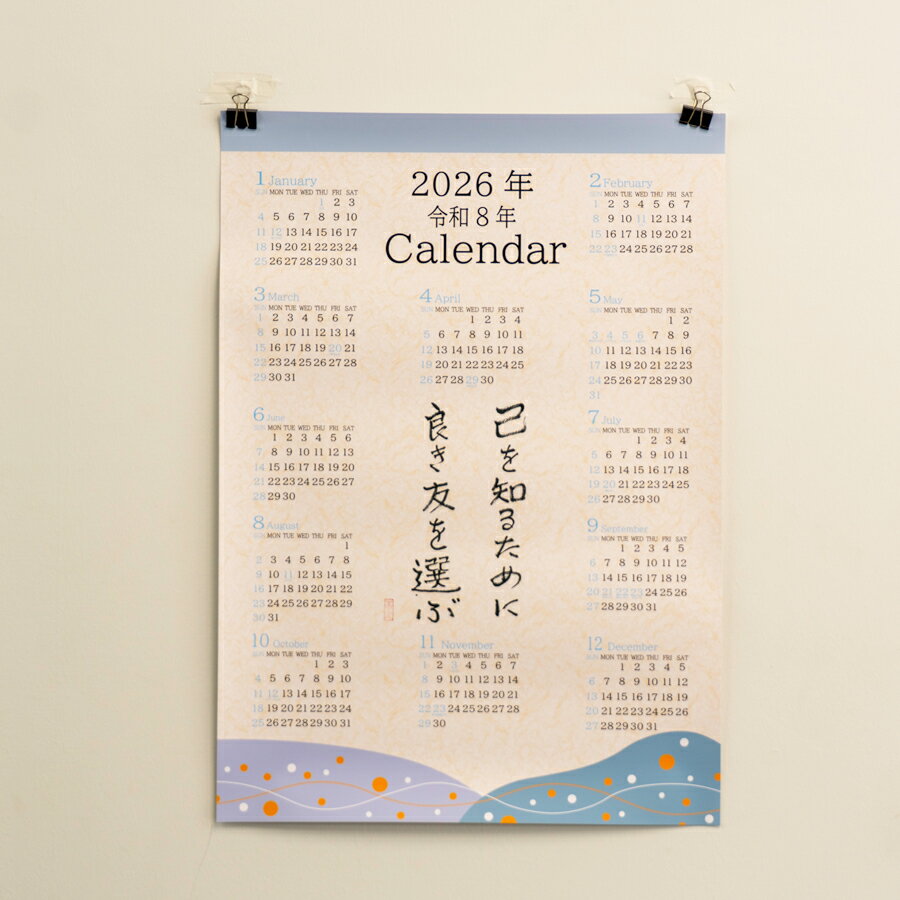 2026年
令和8年
Calendar
1 January
SUN MON TUE WED THU FRI SAT
1 2 3
4 5 6 7 8 9 10
11 12 13 14 15 16 17
18 19 20 21 22 23 24
25 26 27 28 29 30 31
2 February
SUN MON TUE WED THU FRI SAT
1 2 3 4 5 6 7
8 9 10 11 12 13 14
15 16 17 18 19 20 21
22 23 24 25 26 27 28
3 March
SUN MON TUE WED THU FRI SAT
1 2 3 4 5 6 7
8 9 10 11 12 13 14
15 16 17 18 19 20 21
22 23 24 25 26 27 28
29 30 31
4 April
SUN MON TUE WED THU FRI SAT
1 2 3 4
5 6 7 8 9 10 11
12 13 14 15 16 17 18
19 20 21 22 23 24 25
26 27 28 29 30
5 May
SUN MON TUE WED THU FRI SAT
1 2
3 4 5 6 7 8 9
10 11 12 13 14 15 16
17 18 19 20 21 22 23
24 25 26 27 28 29 30
31
己を知るために
良き友を選ぶ
6 June
SUN MON TUE WED THU FRI SAT
1 2 3 4 5 6
7 8 9 10 11 12 13
14 15 16 17 18 19 20
21 22 23 24 25 26 27
28 29 30
7 July
SUN MON TUE WED THU FRI SAT
1 2 3 4
5 6 7 8 9 10 11
12 13 14 15 16 17 18
19 20 21 22 23 24 25
26 27 28 29 30 31
8 August
SUN MON TUE WED THU FRI SAT
1
2 3 4 5 6 7 8
9 10 11 12 13 14 15
16 17 18 19 20 21 22
23 24 25 26 27 28 29
30 31
9 September
SUN MON TUE WED THU FRI SAT
1 2 3 4 5
6 7 8 9 10 11 12
13 14 15 16 17 18 19
20 21 22 23 24 25 26
27 28 29 30
10 October
SUN MON TUE WED THU FRI SAT
1 2 3
4 5 6 7 8 9 10
11 12 13 14 15 16 17
18 19 20 21 22 23 24
25 26 27 28 29 30 31
11 November
SUN MON TUE WED THU FRI SAT
1 2 3 4 5 6 7
8 9 10 11 12 13 14
15 16 17 18 19 20 21
22 23 24 25 26 27 28
29 30
12 December
SUN MON TUE WED THU FRI SAT
1 2 3 4 5
6 7 8 9 10 11 12
13 14 15 16 17 18 19
20 21 22 23 24 25 26
27 28 29 30 31